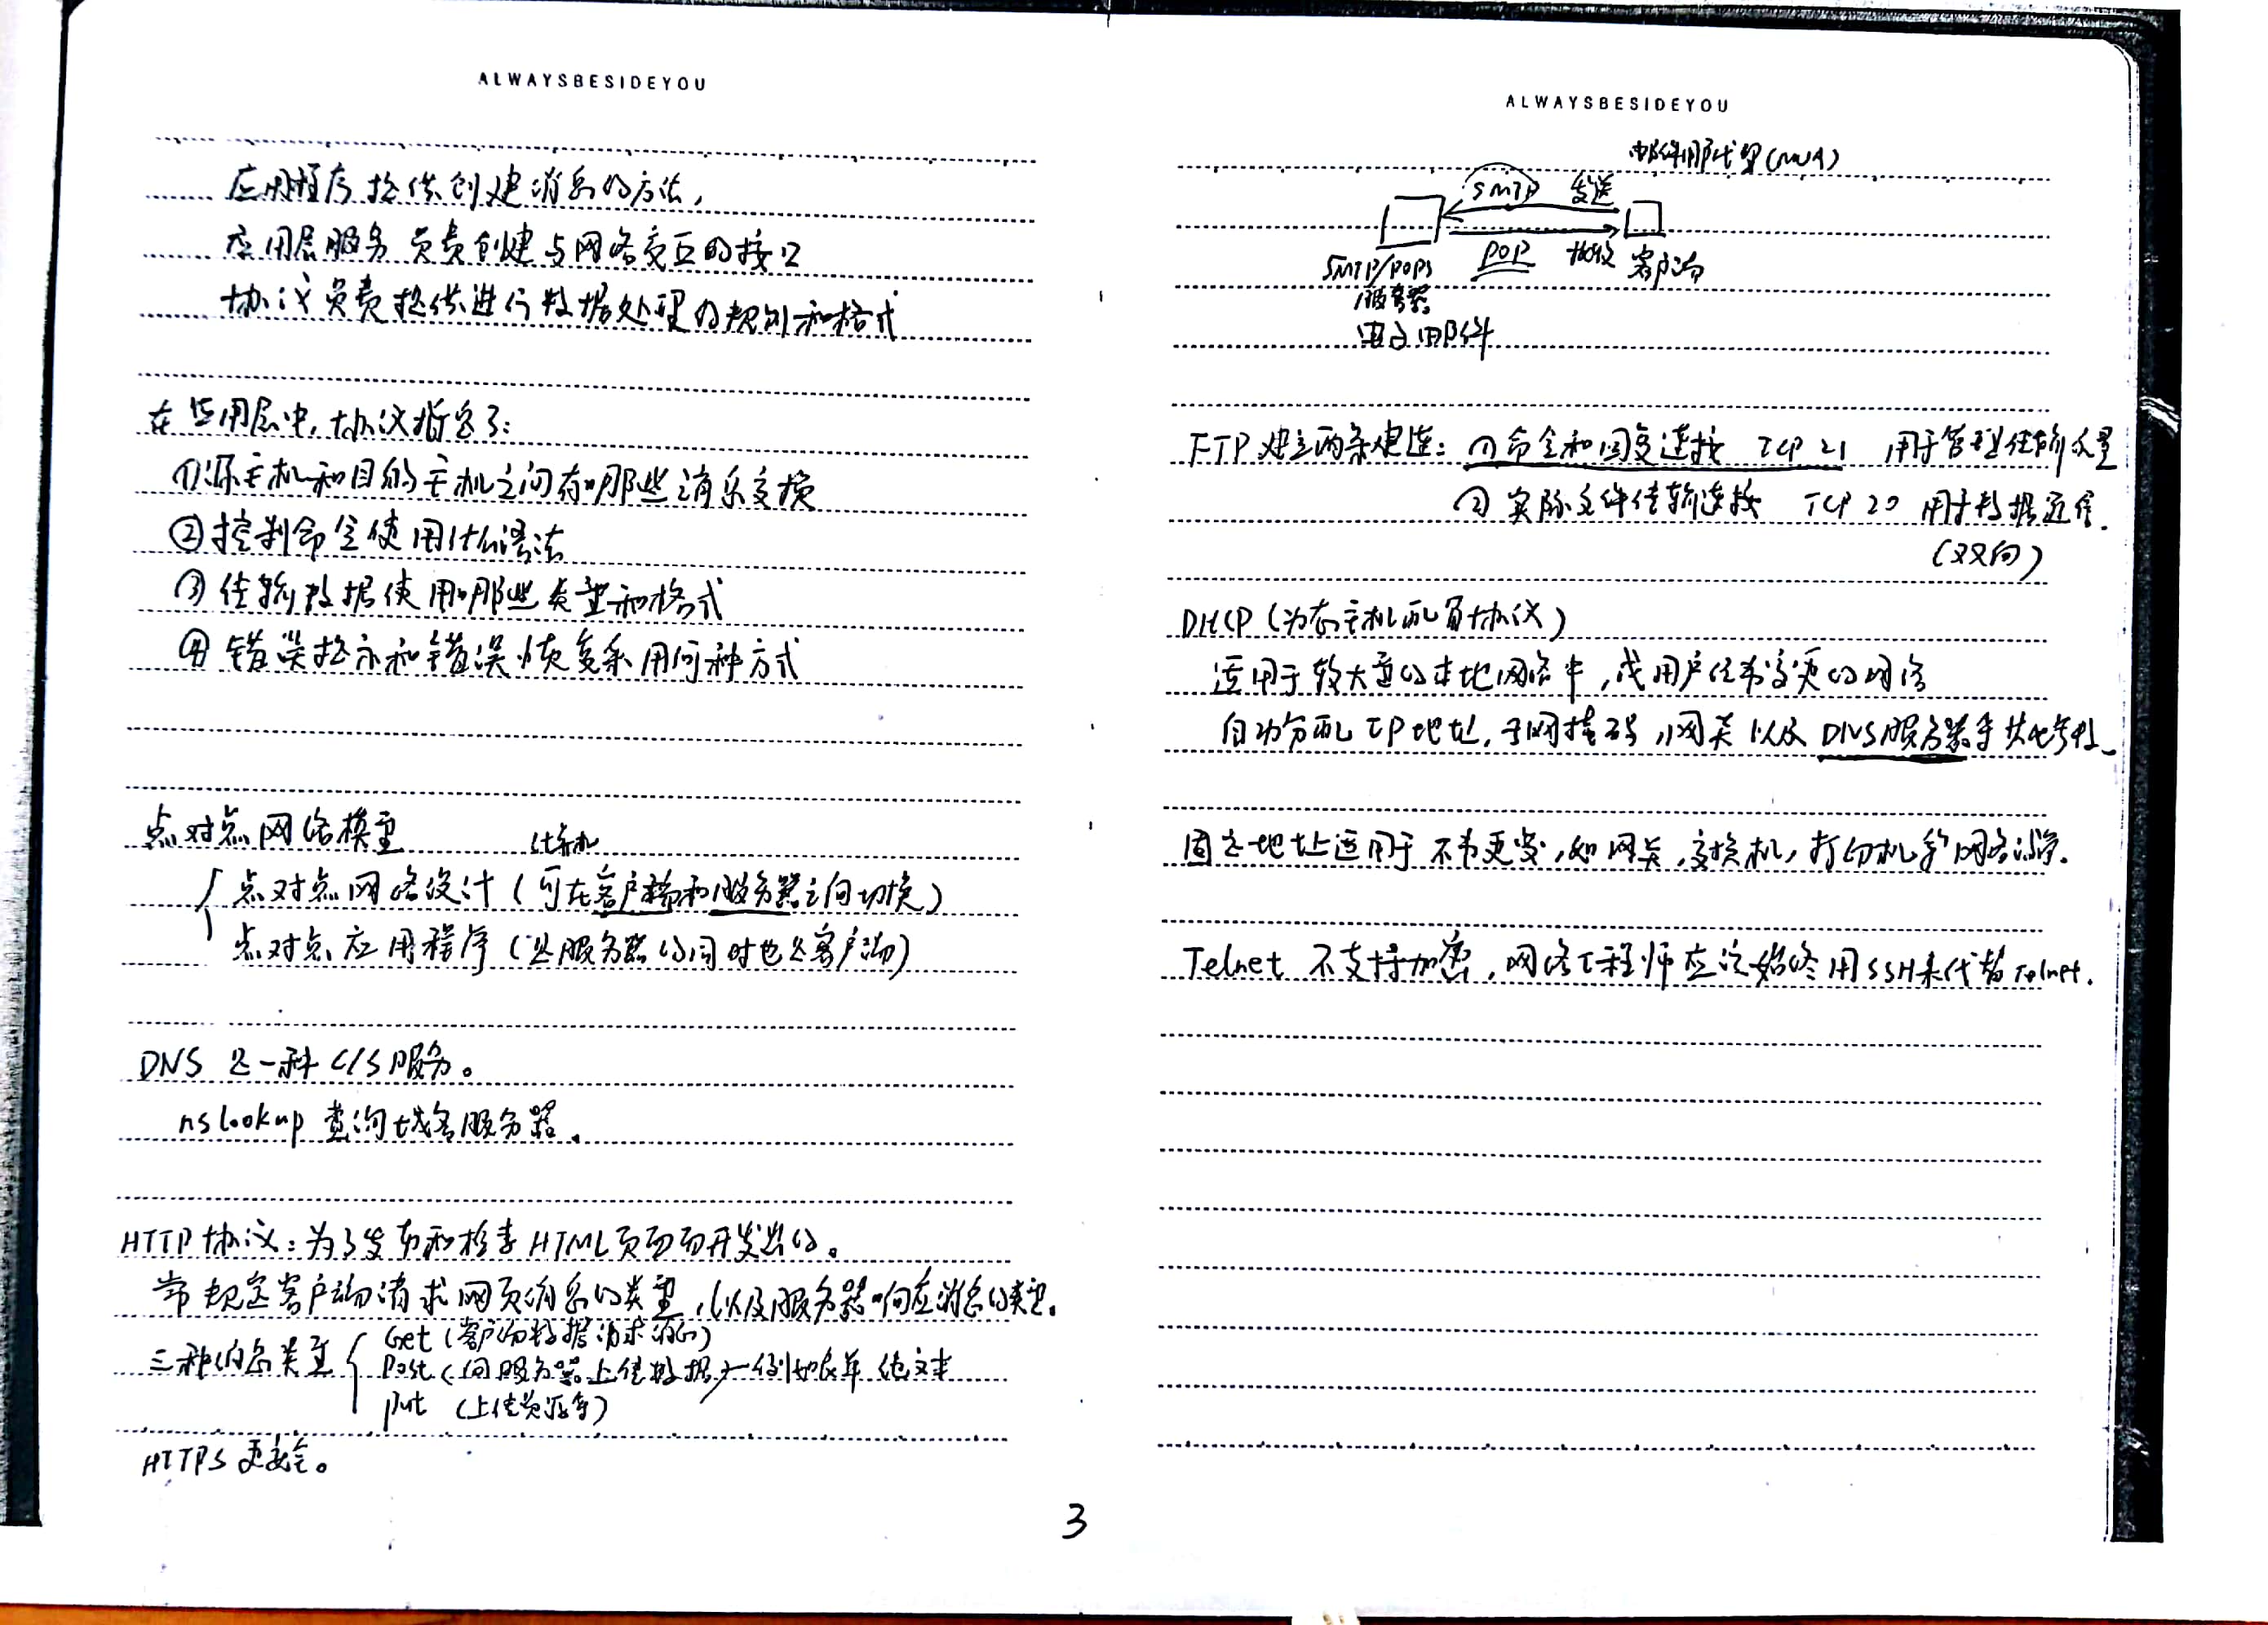 ALWAYSBESIDEYOU
应用程序提供创建消息的方法，
应用层服务 负责创建与网络交互的接口
协议负责提供进行数据处理的规则和格式
在应用层中，协议指定了：
①源主机和目的主机之间有哪些消息交换
②控制命令使用什么语法
③传输数据使用哪些类型和格式
④错误提示和错误恢复采用何种方式
点对点网络模型
计算机
点对点网络设计（可在客户端和服务器之间切换）
点对点应用程序（是服务器的同时也是客户端）
DNS 是一种 C/S 服务。
nslookup 查询域名服务器。
HTTP 协议：为了发布和检索 HTML 页面而开发出的。
常规定客户端请求网页消息的类型，以及服务器响应消息的类型。
三种消息类型
Get（客户端数据请求消息）
Post（向服务器上传数据）—例如表单 纯文本
Put （上传资源等）
HTTPS 更安全。
ALWAYSBESIDEYOU
邮件用户代理(MUA)
SMTP 发送
POP 接收 客户端
SMTP/POP3
服务器
电子邮件
FTP 建立两条连接：①命令和回复连接 TCP 21 用于管理传输流量
②实际文件传输连接 TCP 20 用于数据通信.
（双向）
DHCP（动态主机配置协议）
适用于较大型的本地网络中，或用户经常变更的网络
自动分配 IP 地址，子网掩码，网关以及 DNS服务器等其他参数
固定地址适用于不常更变，如网关，交换机，打印机等网络设备.
Telnet 不支持加密，网络工程师应该始终用 SSH 来代替 Telnet.
3